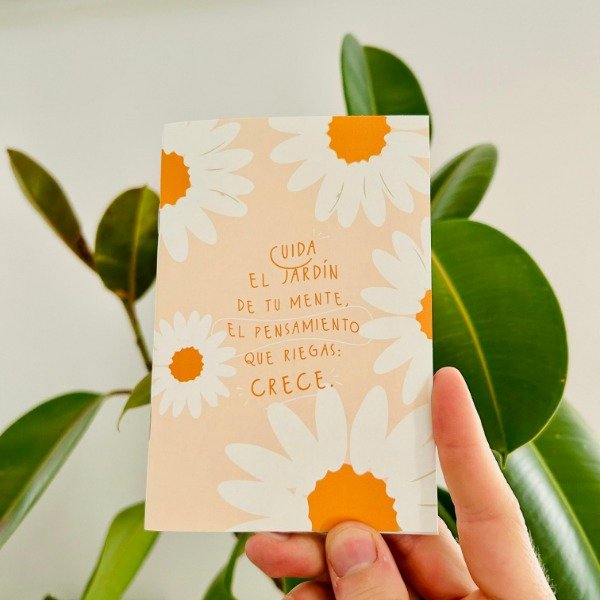 CUIDA
EL JARDÍN
DE TU MENTE,
EL PENSAMIENTO
QUE RIEGAS:
CRECE.